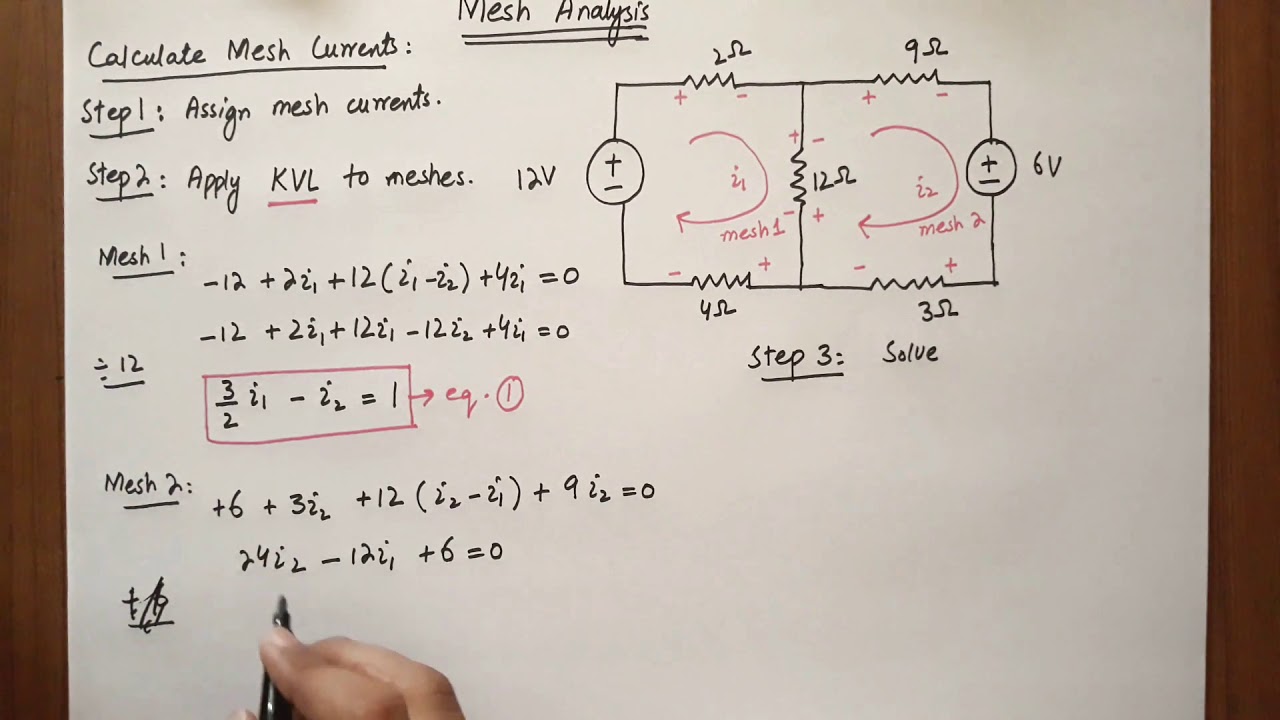 Mesh Analysis
Calculate Mesh Currents:
Step1: Assign mesh currents.
Step2: Apply KVL to meshes.
Mesh 1:
-12 + 2i₁ + 12(i₁-i₂) + 4i₁ = 0
-12 + 2i₁ + 12i₁ - 12i₂ + 4i₁ = 0
÷ 12
3/2 i₁ - i₂ = 1 → eq. ①
Mesh 2:
+6 + 3i₂ + 12 (i₂-i₁) + 9i₂ = 0
24i₂ - 12i₁ + 6 = 0
2Ω
9Ω
+ - + -
12V
+ -
i₁
+ -
12Ω
- +
i₂
+ -
6V
mesh 1
mesh 2
- + - +
4Ω
3Ω
Step 3: Solve